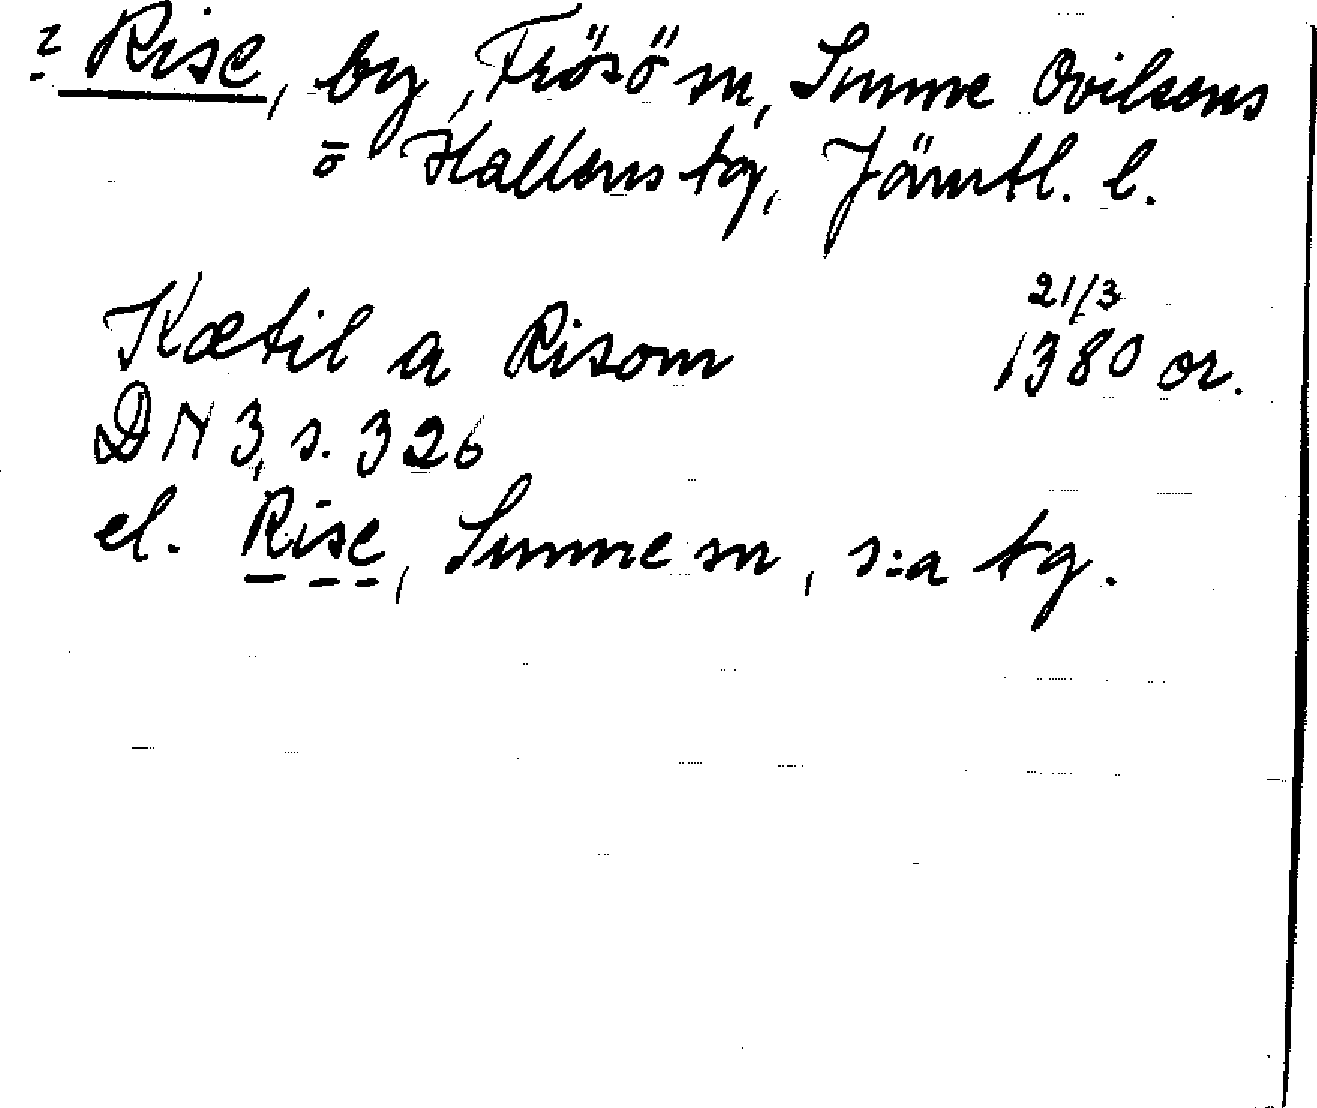 ? Rise, by, Frösö sn, Sunne Ovikens
o Hallens tg, Jämtl. l.
21/3
Kætil a Risom 1380 or.
DN 3, s. 326
el. Rise, Sunne sn, s:a tg.